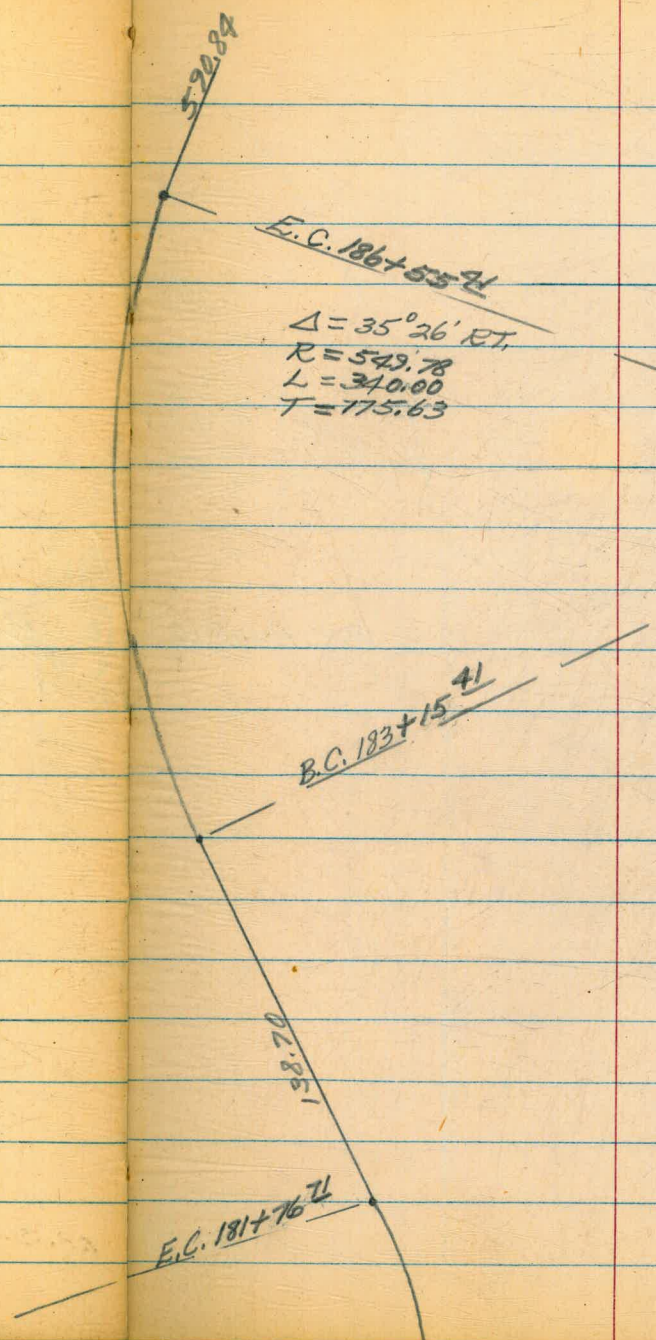 590.84
E.C. 186+55 41
Δ = 35°26' RT.
R = 549.78
L = 340.00
T = 175.63
B.C. 183+15 41
138.70
E.C. 181+76 71